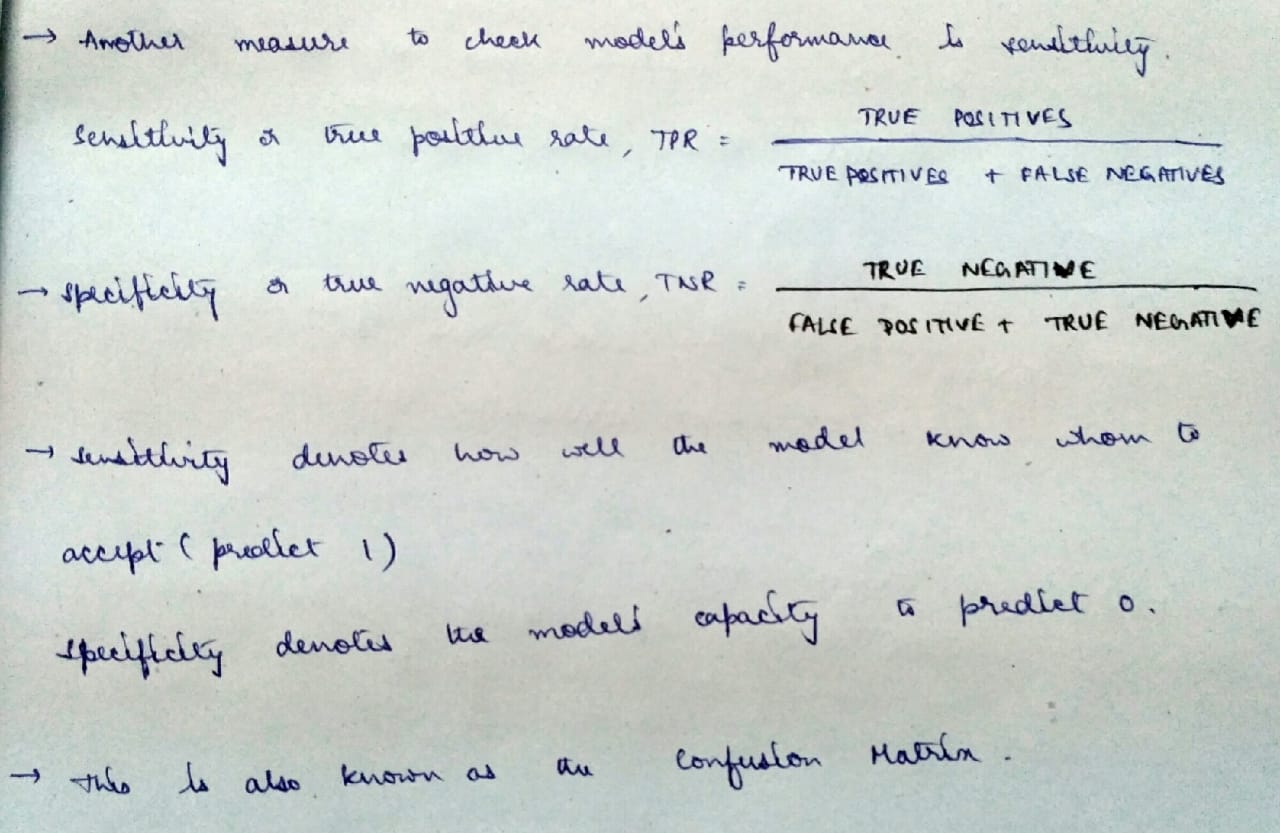 → Another measure to check model's performance is sensitivity.
TRUE POSITIVES
Sensitivity or true positive rate, TPR =
TRUE POSITIVES + FALSE NEGATIVES
TRUE NEGATIVE
→ specificity or true negative rate, TNR =
FALSE POSITIVE + TRUE NEGATIVE
→ sensitivity denotes how well the model know whom to
accept (predict 1)
specificity denotes the model's capacity to predict 0.
→ This is also known as the Confusion Matrix.